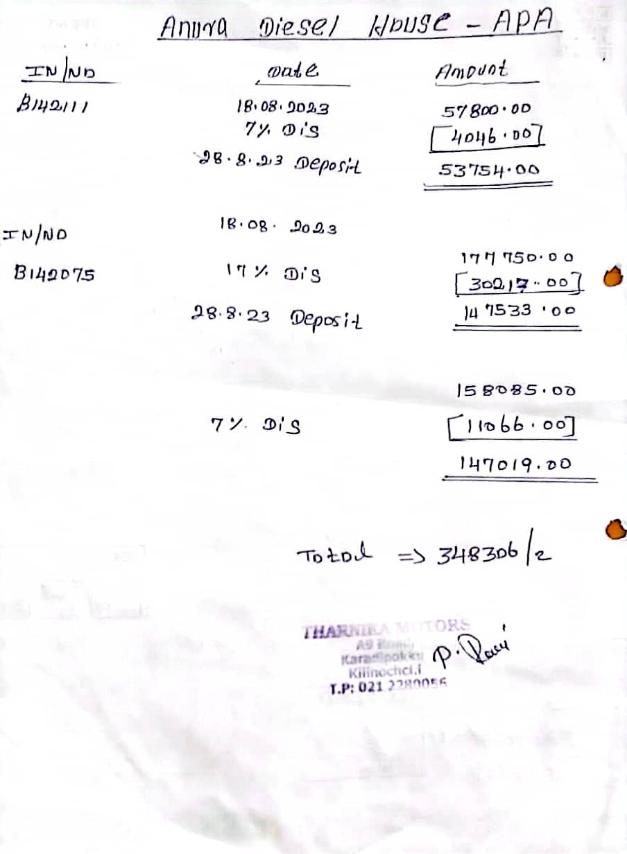 Anura Diesel House - APA
IN/NO Date Amount
B142111 18.08.2023 57800.00
7% Dis [4046.00]
28.8.23 Deposit 53754.00
IN/NO 18.08.2023
177750.00
B142075 17% Dis [30217.00]
28.8.23 Deposit 147533.00
158085.00
7% Dis [11066.00]
147019.00
Total => 348306/2
THARNIKA MOTORS
A9 Road,
Karadipokku
Kilinochci.i
P. Ravi
T.P: 021 2280056